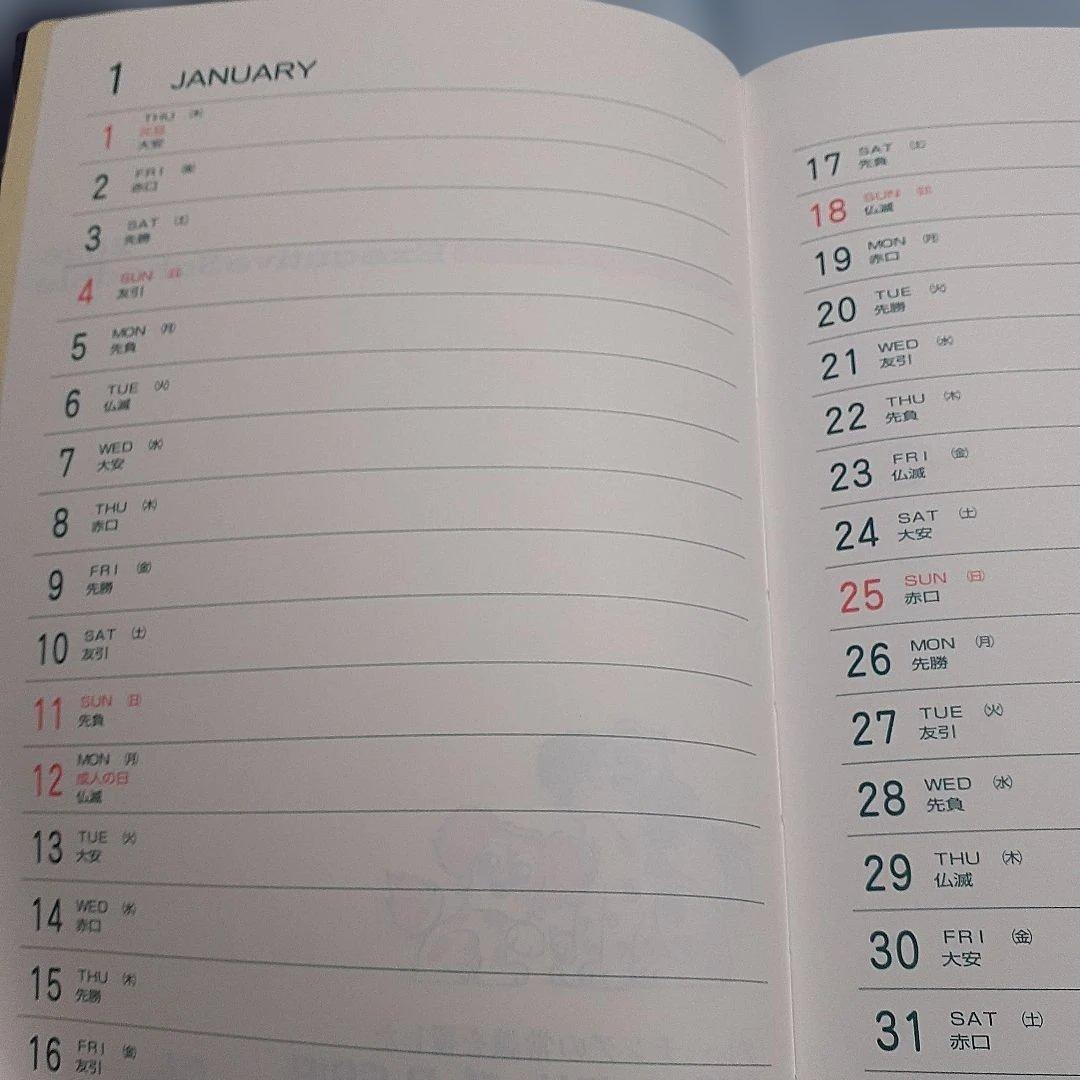 1 JANUARY
1 THU ㈭
元日
大安
2 FRI ㈮
赤口
3 SAT ㈯
先勝
4 SUN ㈰
友引
5 MON ㈪
先負
6 TUE ㈫
仏滅
7 WED ㈬
大安
8 THU ㈭
赤口
9 FRI ㈮
先勝
10 SAT ㈯
友引
11 SUN ㈰
先負
12 MON ㈪
成人の日
仏滅
13 TUE ㈫
大安
14 WED ㈬
赤口
15 THU ㈭
先勝
16 FRI ㈮
友引
17 SAT ㈯
先負
18 SUN ㈰
仏滅
19 MON ㈪
赤口
20 TUE ㈫
先勝
21 WED ㈬
友引
22 THU ㈭
先負
23 FRI ㈮
仏滅
24 SAT ㈯
大安
25 SUN ㈰
赤口
26 MON ㈪
先勝
27 TUE ㈫
友引
28 WED ㈬
先負
29 THU ㈭
仏滅
30 FRI ㈮
大安
31 SAT ㈯
赤口